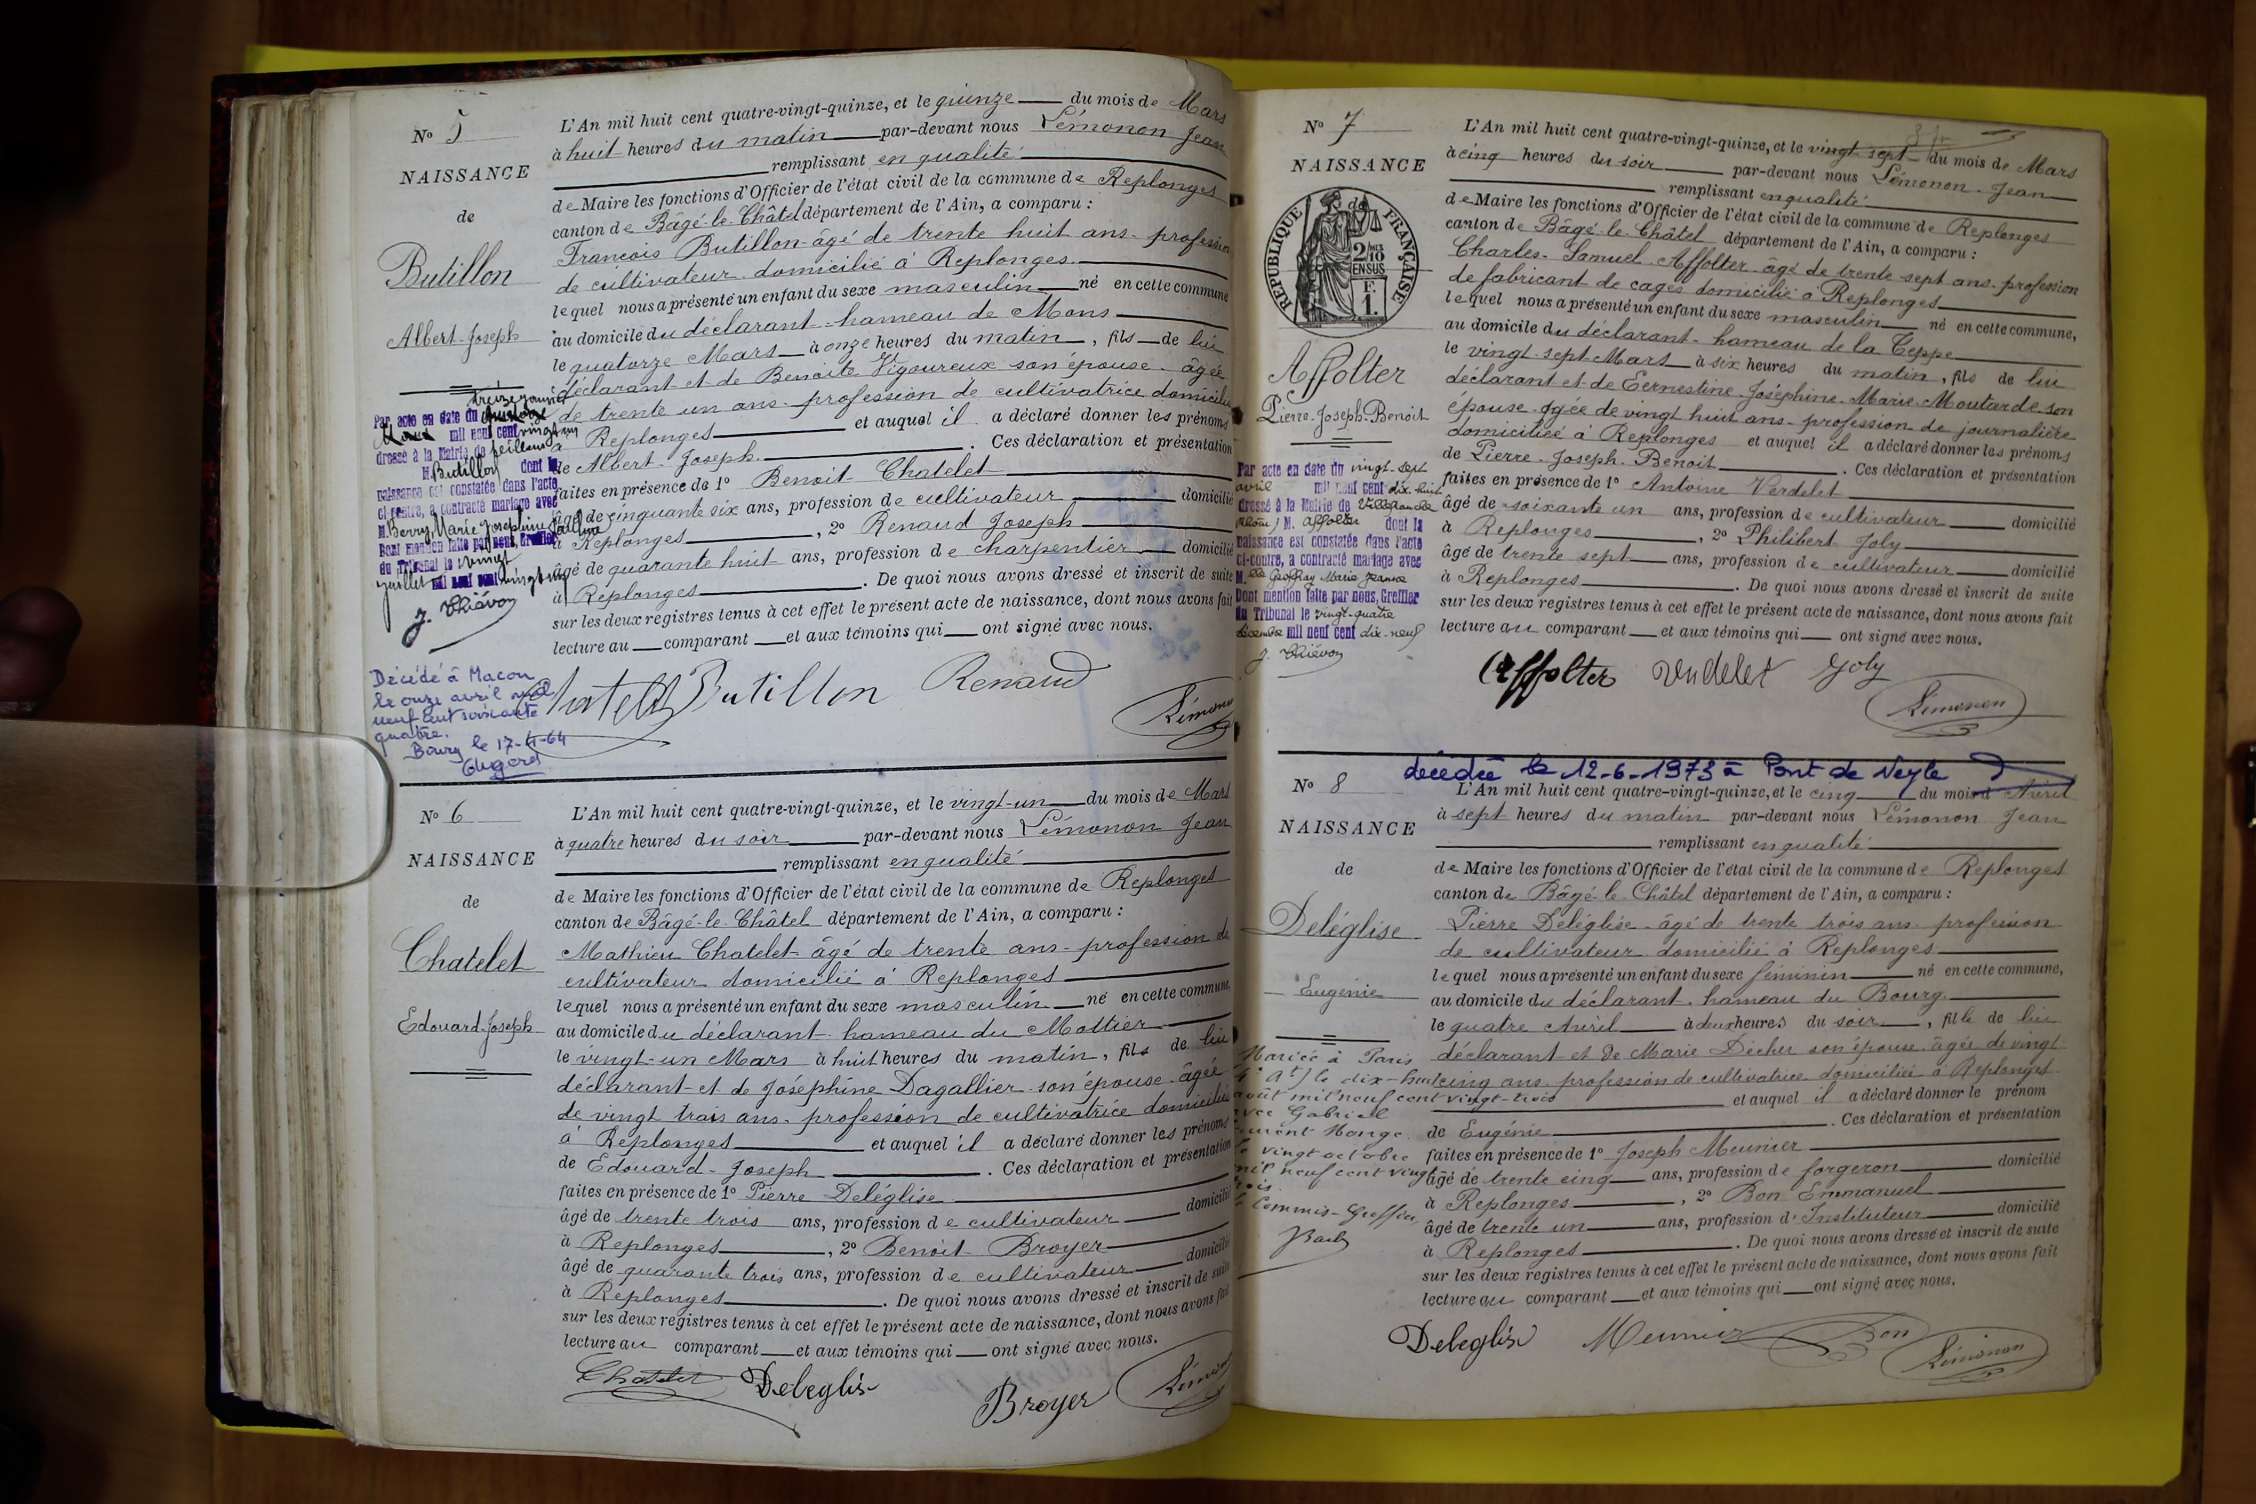 N° 5
NAISSANCE
de
Butillon
Albert-Joseph
L'An mil huit cent quatre-vingt-quinze, et le quinze du mois de Mars
à huit heures du matin par-devant nous Lémonon Jean
remplissant en qualité
de Maire les fonctions d'Officier de l'état civil de la commune de Replonges
canton de Bâgé-le-Châtel département de l'Ain, a comparu :
François Butillon âgé de trente huit ans - profession
de cultivateur domicilié à Replonges
lequel nous a présenté un enfant du sexe masculin né en cette commune
au domicile du déclarant - hameau de Mons
le quatorze Mars à onze heures du matin, fils de lui
déclarant et de Benoite Vigoureux son épouse - âgée
de trente un ans - profession de cultivatrice domiciliée
à Replonges et auquel il a déclaré donner les prénoms
de Albert-Joseph. Ces déclaration et présentation
faites en présence de 1° Benoit Chatelet
âgé de cinquante six ans, profession de cultivateur domicilié
à Replonges, 2° Renaud Joseph
âgé de quarante huit ans, profession de charpentier domicilié
à Replonges. De quoi nous avons dressé et inscrit de suite
sur les deux registres tenus à cet effet le présent acte de naissance, dont nous avons fait
lecture au comparant et aux témoins qui ont signé avec nous.
Par acte en date du treize janvier
mil neuf cent vingt un
dressé à la Mairie de Feillens
M. Butillon dont la
naissance est constatée dans l'acte
ci-contre, a contracté mariage avec
M. Berry Marie Josephine
Dont mention faite par nous, Greffier
du Tribunal le vingt
juillet mil neuf cent vingt un
J. Thiévon
Décédé à Macon
le onze avril mil
neuf cent soixante
quatre.
Bourg le 17-4-64
Chatelet Butillon Renaud
Lémonon
N° 6
NAISSANCE
de
Chatelet
Edouard-Joseph
L'An mil huit cent quatre-vingt-quinze, et le vingt-un du mois de Mars
à quatre heures du soir par-devant nous Lémonon Jean
remplissant en qualité
de Maire les fonctions d'Officier de l'état civil de la commune de Replonges
canton de Bâgé-le-Châtel département de l'Ain, a comparu :
Mathieu Chatelet - âgé de trente ans - profession de
cultivateur domicilié à Replonges
lequel nous a présenté un enfant du sexe masculin né en cette commune,
au domicile du déclarant - hameau du Mottier
le vingt-un Mars à huit heures du matin, fils de lui
déclarant et de Joséphine Dagallier son épouse - âgée
de vingt trois ans - profession de cultivatrice domiciliée
à Replonges et auquel il a déclaré donner les prénoms
de Edouard-Joseph. Ces déclaration et présentation
faites en présence de 1° Pierre Deléglise
âgé de trente trois ans, profession de cultivateur domicilié
à Replonges, 2° Benoit Broyer
âgé de quarante trois ans, profession de cultivateur domicilié
à Replonges. De quoi nous avons dressé et inscrit de suite
sur les deux registres tenus à cet effet le présent acte de naissance, dont nous avons fait
lecture au comparant et aux témoins qui ont signé avec nous.
Chatelet Deleglise Broyer Lémonon
N° 7
NAISSANCE
RÉPUBLIQUE FRANÇAISE
2/10
EN SUS
F.
1.
Affolter
Pierre-Joseph-Benoit
L'An mil huit cent quatre-vingt-quinze, et le vingt sept du mois de Mars
à cinq heures du soir par-devant nous Lémonon Jean
remplissant en qualité
de Maire les fonctions d'Officier de l'état civil de la commune de Replonges
canton de Bâgé-le-Châtel département de l'Ain, a comparu :
Charles-Samuel Affolter âgé de trente sept ans - profession
de fabricant de cages domicilié à Replonges
lequel nous a présenté un enfant du sexe masculin né en cette commune,
au domicile du déclarant - hameau de la Teppe
le vingt-sept Mars à six heures du matin, fils de lui
déclarant et de Eernestine-Joséphine-Marie-Moutarde son
épouse âgée de vingt huit ans - profession de journalière
domiciliée à Replonges et auquel il a déclaré donner les prénoms
de Pierre-Joseph-Benoit. Ces déclaration et présentation
faites en présence de 1° Antoine Verdelet
âgé de soixante un ans, profession de cultivateur domicilié
à Replonges, 2° Philibert Joly
âgé de trente sept ans, profession de cultivateur domicilié
à Replonges. De quoi nous avons dressé et inscrit de suite
sur les deux registres tenus à cet effet le présent acte de naissance, dont nous avons fait
lecture au comparant et aux témoins qui ont signé avec nous.
Par acte en date du vingt-sept
avril mil neuf cent dix-huit
dressé à la Mairie de Villefranche
Rhône M. Affolter dont la
naissance est constatée dans l'acte
ci-contre, a contracté mariage avec
M. lle Geoffray Marie Jeanne
Dont mention faite par nous, Greffier
du Tribunal le vingt-quatre
décembre mil neuf cent dix-neuf
J. Thiévon
Affolter Verdelet Joly
Lémonon
décédée le 12-6-1973 à Pont de Veyle
N° 8
NAISSANCE
de
Deléglise
Eugénie
L'An mil huit cent quatre-vingt-quinze, et le cinq du mois d'Avril
à sept heures du matin par-devant nous Lémonon Jean
remplissant en qualité
de Maire les fonctions d'Officier de l'état civil de la commune de Replonges
canton de Bâgé-le-Châtel département de l'Ain, a comparu :
Pierre Deléglise - âgé de trente trois ans - profession
de cultivateur domicilié à Replonges
lequel nous a présenté un enfant du sexe féminin né en cette commune,
au domicile du déclarant - hameau du Bourg
le quatre Avril à deux heures du soir, fille de lui
déclarant et de Marie Décher son épouse - âgée de vingt
cinq ans profession de cultivatrice domiciliée à Replonges
et auquel il a déclaré donner le prénom
de Eugénie. Ces déclaration et présentation
faites en présence de 1° Joseph Meunier
âgé de trente cinq ans, profession de forgeron domicilié
à Replonges, 2° Bon Emmanuel
âgé de trente un ans, profession d'Instituteur domicilié
à Replonges. De quoi nous avons dressé et inscrit de suite
sur les deux registres tenus à cet effet le présent acte de naissance, dont nous avons fait
lecture au comparant et aux témoins qui ont signé avec nous.
Mariée à Paris
le dix-huit
août mil neuf cent vingt-trois
avec Gabriel
Monge
le vingt octobre
mil neuf cent vingt
trois
le Commis-Greffier
Deleglise Meunier Bon Lémonon